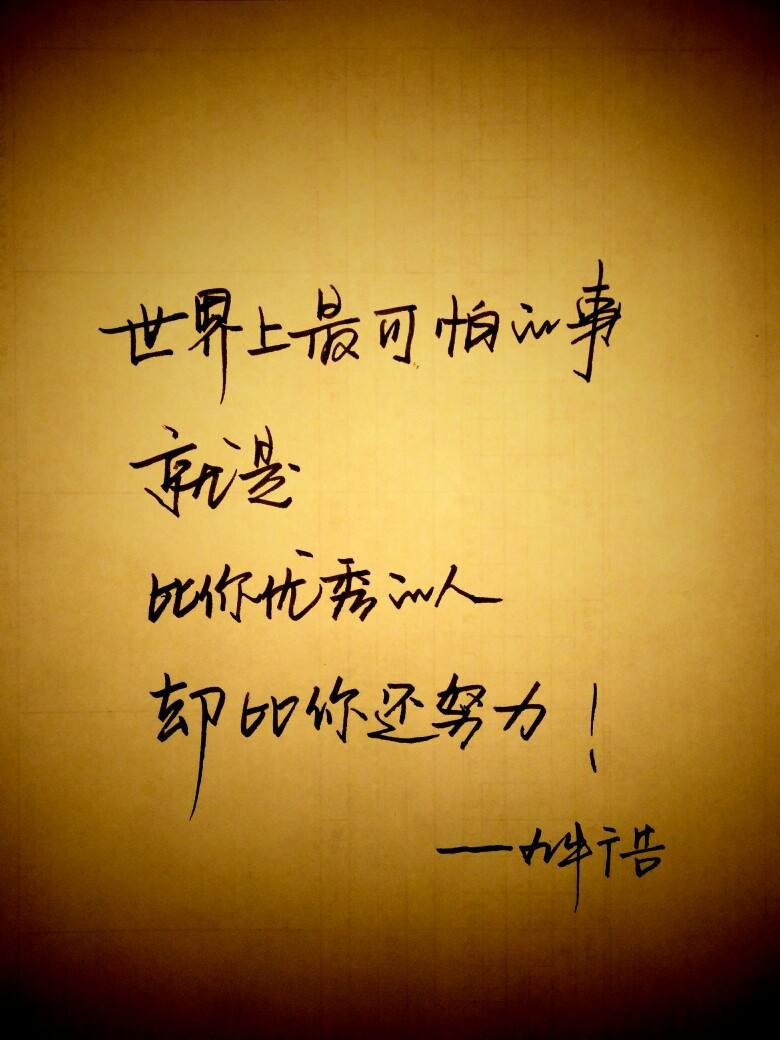 世界上最可怕的事
就是
比你优秀的人
却比你还努力！
——九牛广告